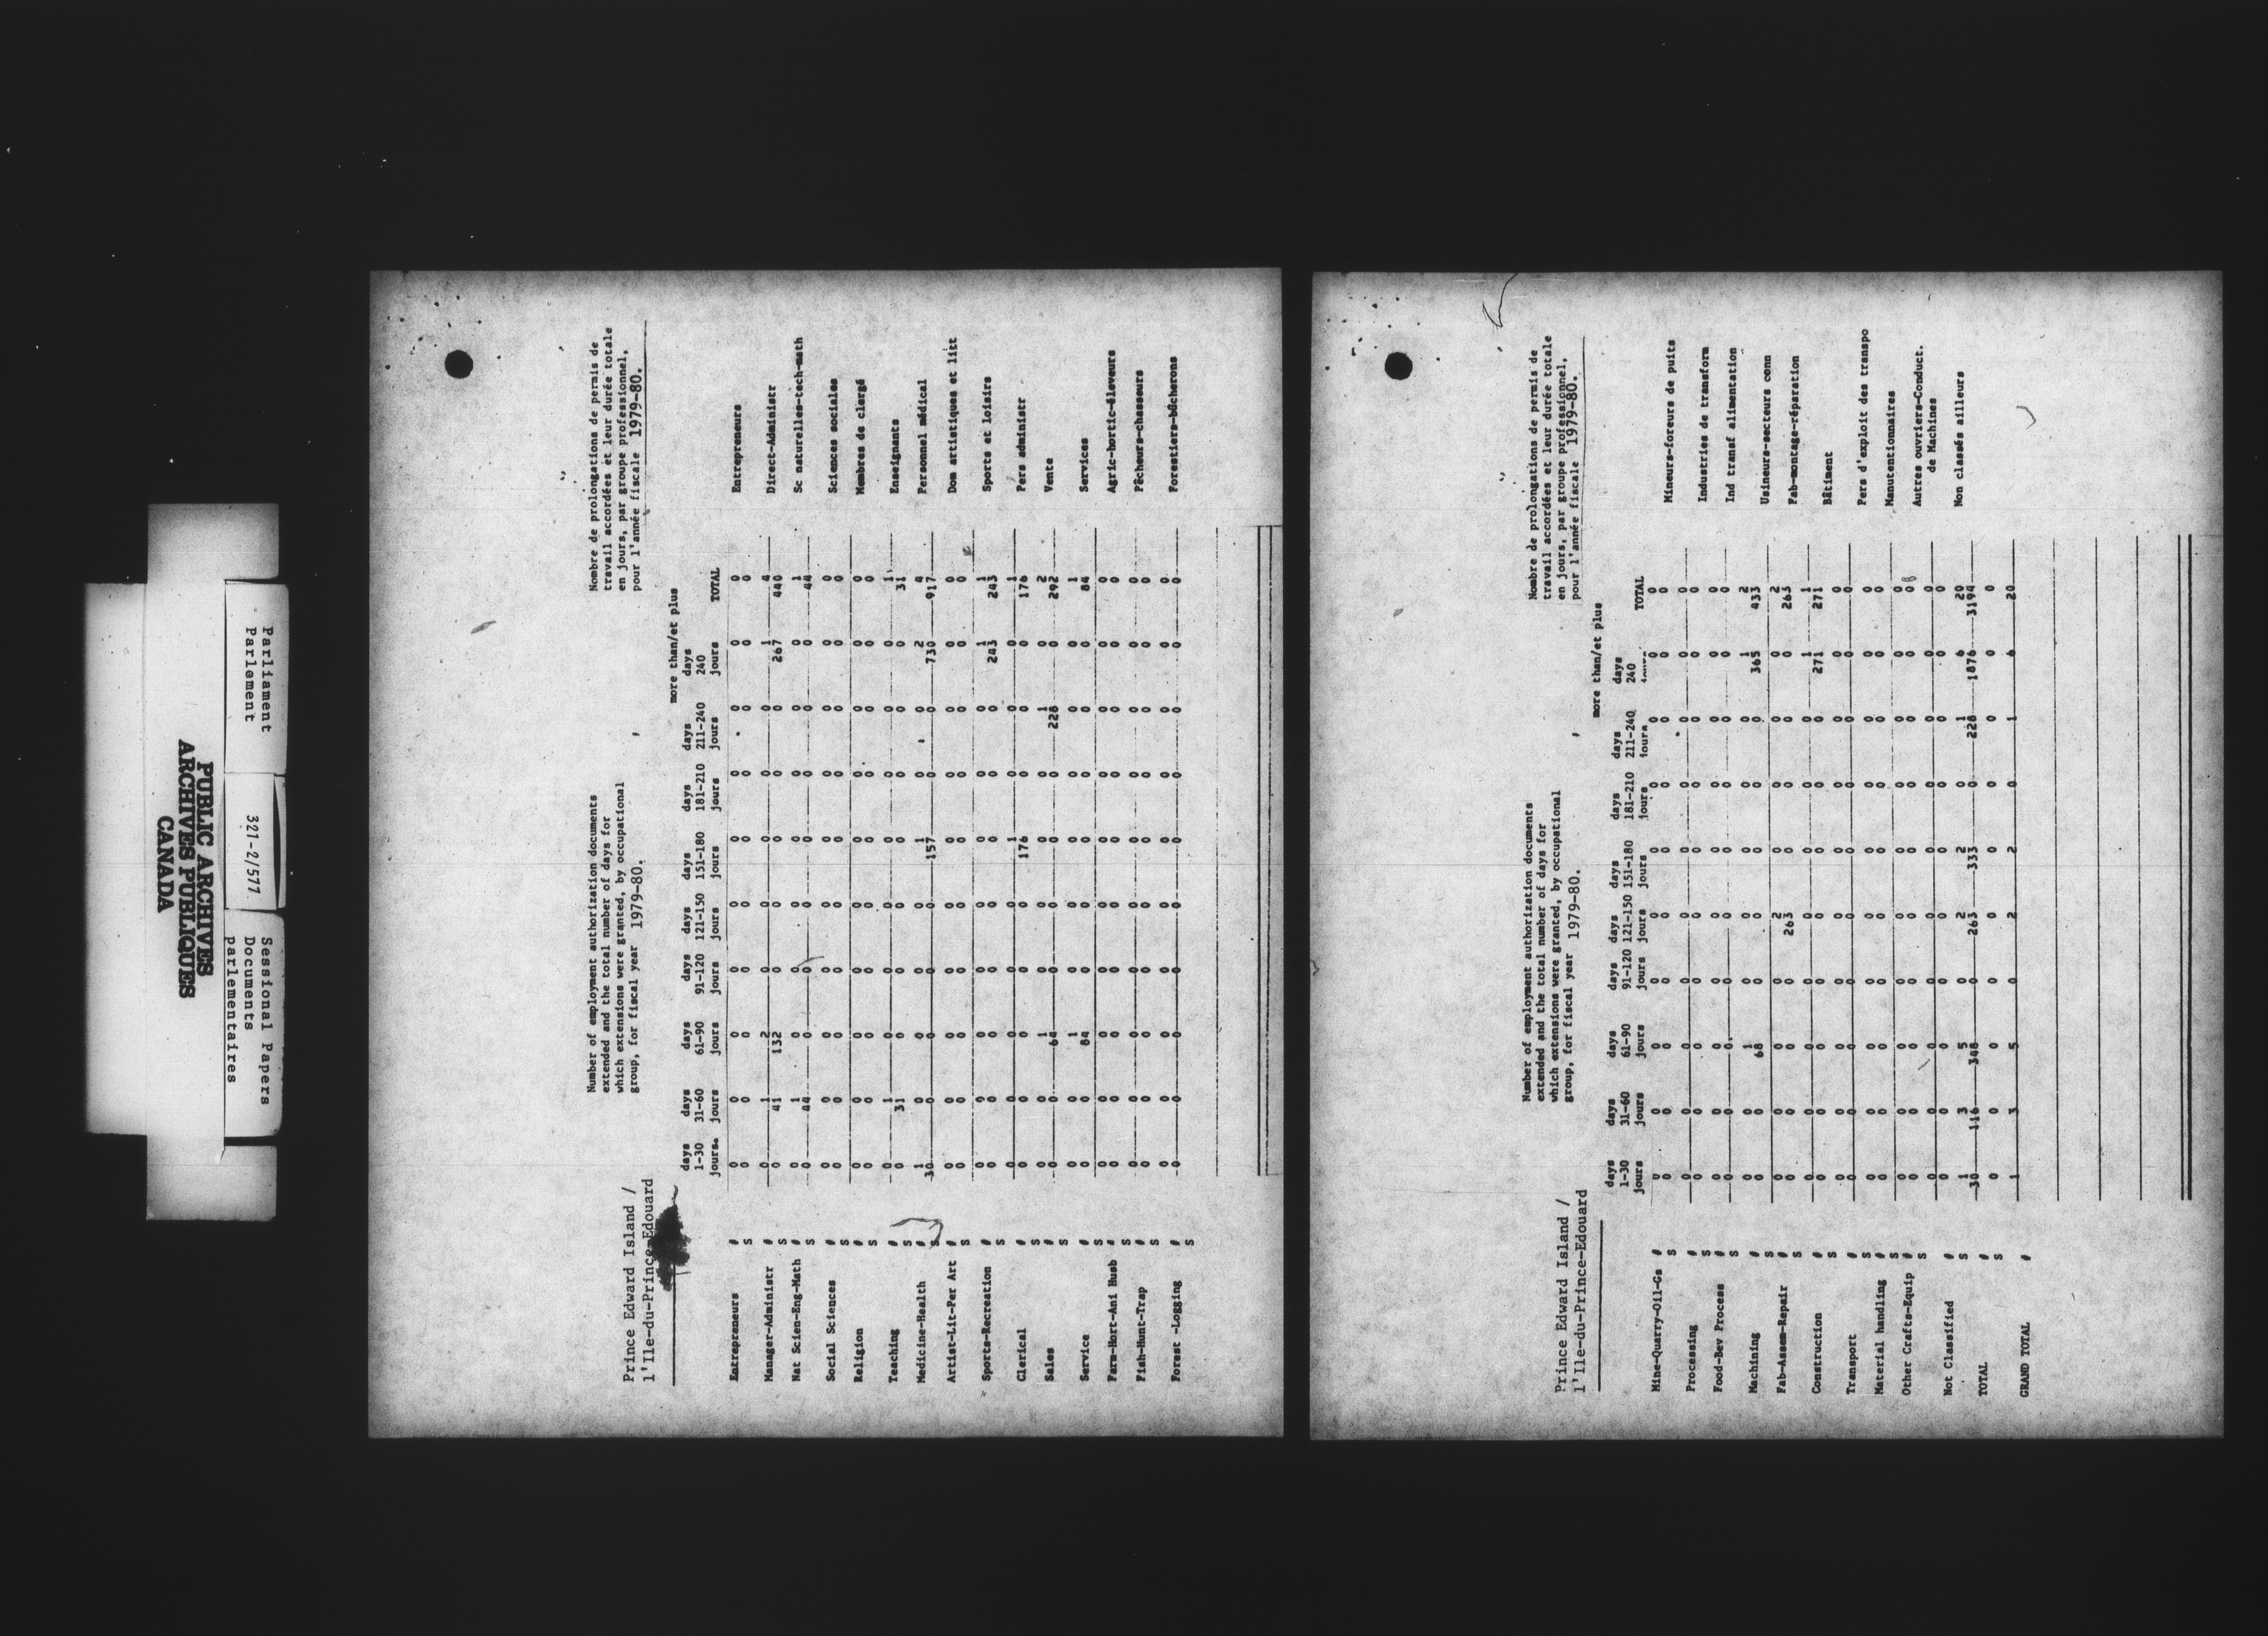 Parliament
Parlement
321-2/577
Sessional Papers
Documents
parlementaires
PUBLIC ARCHIVES
ARCHIVES PUBLIQUES
CANADA
Prince Edward Island /
l'Ile-du-Prince-Edouard
Number of employment authorization documents
extended and the total number of days for
which extensions were granted, by occupational
group, for fiscal year 1979-80.
Nombre de prolongations de permis de
travail accordées et leur durée totale
en jours, par groupe professionnel,
pour l'année fiscale 1979-80.
more than/et plus
days days days days days days days days days
1-30 31-60 61-90 91-120 121-150 151-180 181-210 211-240 240 TOTAL
jours. jours jours jours jours jours jours jours jours
Entrepreneurs # 0 0 0 0 0 0 0 0 0 0 Entrepreneurs
S 0 0 0 0 0 0 0 0 0 0
Manager-Administr # 0 1 2 0 0 0 0 0 1 4 Direct-Administr
S 0 41 132 0 0 0 0 0 267 440
Nat Scien-Eng-Math # 0 1 0 0 0 0 0 0 0 1 Sc naturelles-tech-math
S 0 44 0 0 0 0 0 0 0 44
Social Sciences # 0 0 0 0 0 0 0 0 0 0 Sciences sociales
S 0 0 0 0 0 0 0 0 0 0
Religion # 0 0 0 0 0 0 0 0 0 0 Membres de clergé
S 0 0 0 0 0 0 0 0 0 0
Teaching # 0 1 0 0 0 0 0 0 0 1 Enseignants
S 0 31 0 0 0 0 0 0 0 31
Medicine-Health # 1 0 0 0 0 1 0 0 2 4 Personnel médical
S 30 0 0 0 0 157 0 0 730 917
Artist-Lit-Per Art # 0 0 0 0 0 0 0 0 0 0 Dom artistiques et litt
S 0 0 0 0 0 0 0 0 0 0
Sports-Recreation # 0 0 0 0 0 0 0 0 1 1 Sports et loisirs
S 0 0 0 0 0 0 0 0 243 243
Clerical # 0 0 0 0 0 1 0 0 0 1 Pers administr
S 0 0 0 0 0 176 0 0 0 176
Sales # 0 0 1 0 0 0 0 1 0 2 Vente
S 0 0 64 0 0 0 0 228 0 292
Service # 0 0 1 0 0 0 0 0 0 1 Services
S 0 0 84 0 0 0 0 0 0 84
Farm-Hort-Ani Husb # 0 0 0 0 0 0 0 0 0 0 Agric-hortic-éleveurs
S 0 0 0 0 0 0 0 0 0 0
Fish-Hunt-Trap # 0 0 0 0 0 0 0 0 0 0 Pêcheurs-chasseurs
S 0 0 0 0 0 0 0 0 0 0
Forest -Logging # 0 0 0 0 0 0 0 0 0 0 Forestiers-bûcherons
S 0 0 0 0 0 0 0 0 0 0
Prince Edward Island /
l'Ile-du-Prince-Edouard
Number of employment authorization documents
extended and the total number of days for
which extensions were granted, by occupational
group, for fiscal year 1979-80.
Nombre de prolongations de permis de
travail accordées et leur durée totale
en jours, par groupe professionnel,
pour l'année fiscale 1979-80.
more than/et plus
days days days days days days days days days
1-30 31-60 61-90 91-120 121-150 151-180 181-210 211-240 240 TOTAL
jours jours jours jours jours jours jours jours
Mine-Quarry-Oil-Gs # 0 0 0 0 0 0 0 0 0 0 Mineurs-foreurs de puits
S 0 0 0 0 0 0 0 0 0 0
Processing # 0 0 0 0 0 0 0 0 0 0 Industries de transform
S 0 0 0 0 0 0 0 0 0 0
Food-Bev Process # 0 0 0 0 0 0 0 0 0 0 Ind transf alimentation
S 0 0 0 0 0 0 0 0 0 0
Machining # 0 0 1 0 0 0 0 0 1 2 Usineurs-secteurs conn
S 0 0 68 0 0 0 0 0 365 433
Fab-Assem-Repair # 0 0 0 0 2 0 0 0 0 2 Fab-montage-réparation
S 0 0 0 0 263 0 0 0 0 263
Construction # 0 0 0 0 0 0 0 0 1 1 Bâtiment
S 0 0 0 0 0 0 0 0 271 271
Transport # 0 0 0 0 0 0 0 0 0 0 Pers d'exploit des transpo
S 0 0 0 0 0 0 0 0 0 0
Material handling # 0 0 0 0 0 0 0 0 0 0 Manutentionnaires
S 0 0 0 0 0 0 0 0 0 0
Other Crafts-Equip # 0 0 0 0 0 0 0 0 0 0 Autres ouvriers-Conduct.
S 0 0 0 0 0 0 0 0 0 0 de Machines
Not Classified # 0 0 0 0 0 0 0 0 0 0 Non classés ailleurs
S 0 0 0 0 0 0 0 0 0 0
TOTAL # 1 3 5 0 2 2 0 1 6 20
S 30 116 348 0 263 333 0 228 1876 3194
0 0 0 0 0 0 0 0 0 0
GRAND TOTAL # 1 3 5 0 2 2 0 1 6 20